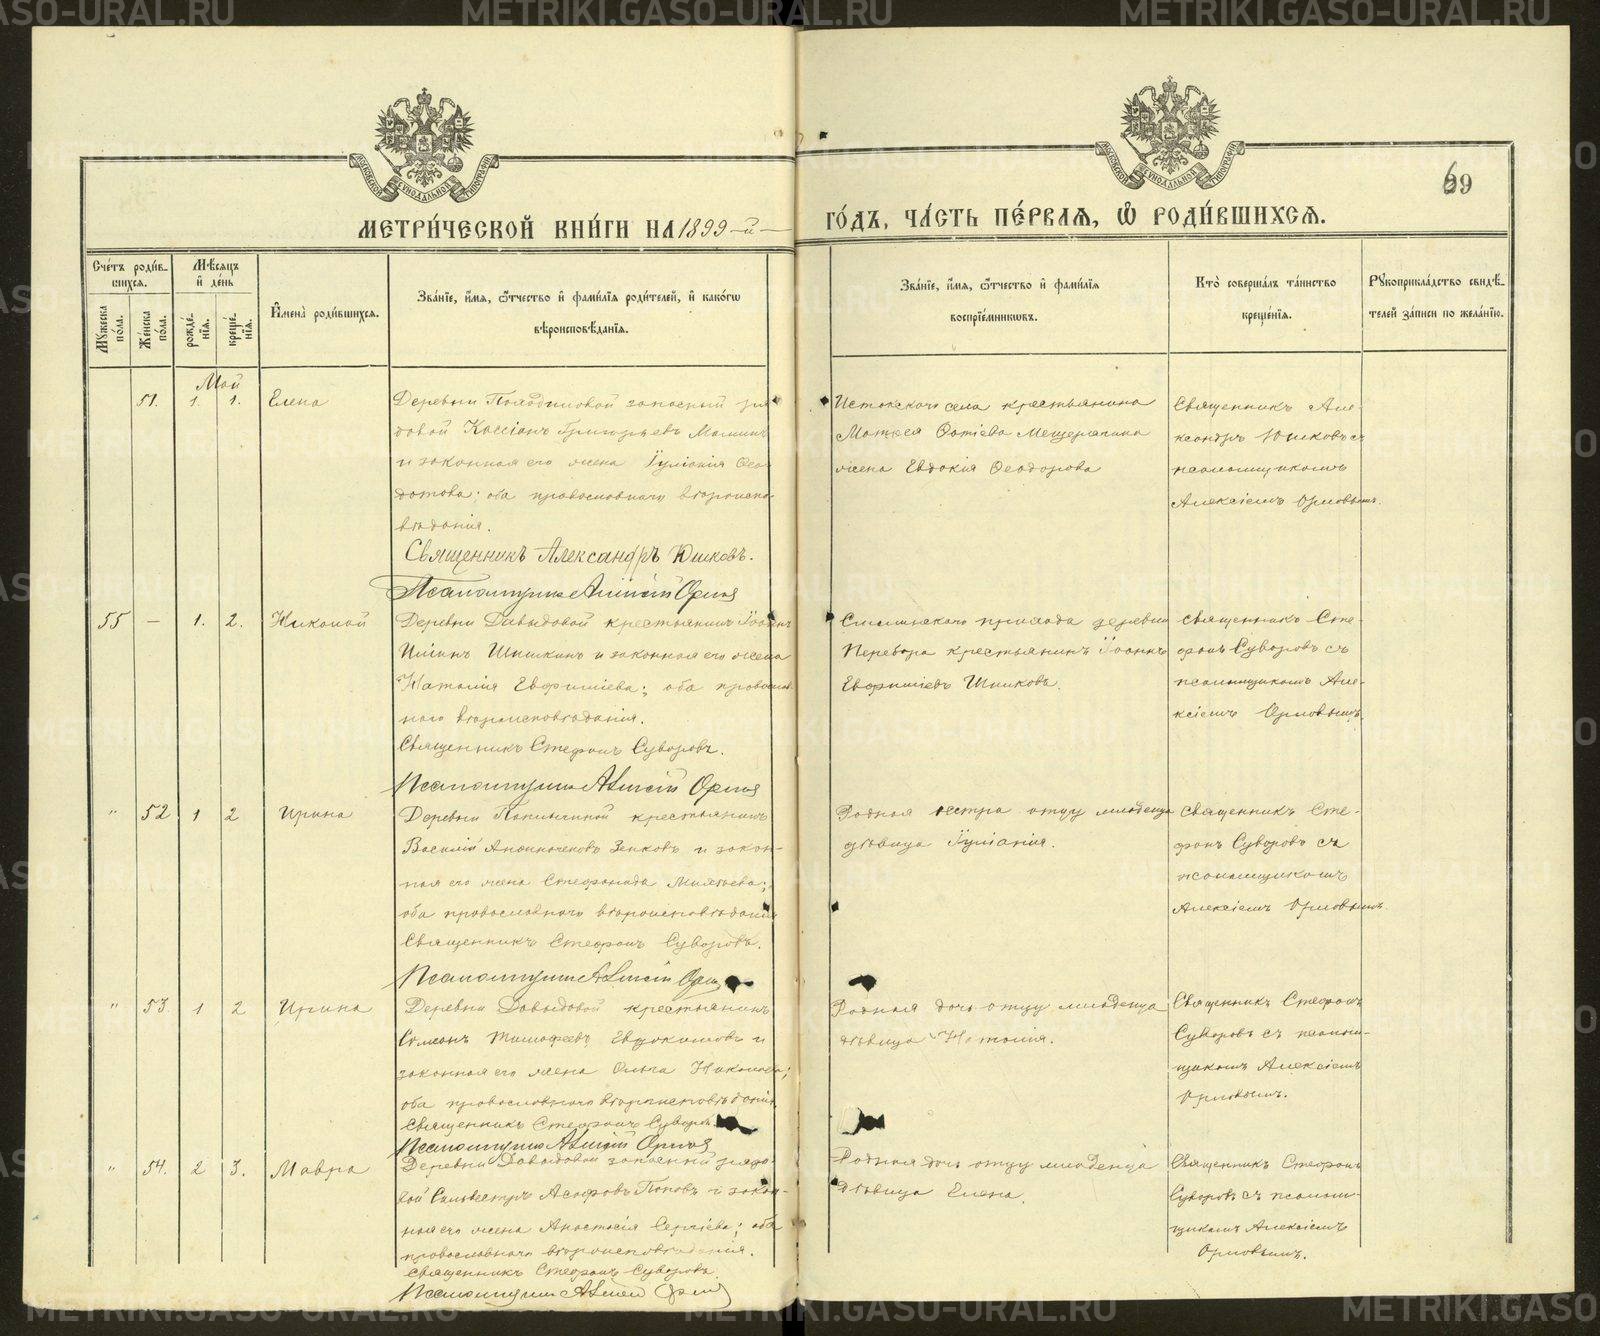 METRIKI.GASO-URAL.RU
69
МЕТРИ́ЧЕСКОЙ КНИ́ГИ НА 1899-й
ГО́ДЪ, ЧА́СТЬ ПЕ́РВАѦ, Ѡ҆ РОДИ́ВШИХСѦ.
Сче́тъ роди́в-
шихсѧ.
Мꙋ́жеска по́ла.
Же́нска по́ла.
Мѣ́сѧцъ и҆ де́нь
рожде́-
нїѧ.
креще́-
нїѧ.
И҆мена̀ роди́вшихсѧ.
Зва́нїе, и҆́мѧ, ѻ҆́тчество и҆ фами́лїѧ роди́телей, и҆ како́гѡ
вѣроисповѣ́данїѧ.
Зва́нїе, и҆́мѧ, ѻ҆́тчество и҆ фами́лїѧ
воспрїе́мникѡвъ.
Кто̀ соверша́лъ та́инство
креще́нїѧ.
Рꙋкоприкла́дство свидѣ́-
телей за́писи по жела́нїю.
Май
51. 1. 1. Елена
Деревни запасный ря-
довой Кассіанъ Григорьевъ
и законная его жена Іуліанія Ѳео-
дотова; оба православнаго вѣроиспо-
вѣданія.
Священникъ Александръ Юшковъ.
Псаломщикъ Алексій Орлов
Истокскаго села крестьянина
Матѳея Фотіева Мещерягина
жена Евдокія Ѳеодорова
Священникъ Але-
ксандръ Юшковъ съ
псаломщикомъ
Алексіемъ Орловымъ.
55 — 1. 2. Николай
Деревни Давыдовой крестьянинъ Іоаннъ
Ильинъ Шишкинъ и законная его жена
Наталія Евфиміева; оба православ-
наго вѣроисповѣданія.
Священникъ Стефанъ Суворовъ.
Псаломщикъ Алексій Орлов
прихода деревни
Перебора крестьянинъ Іоаннъ
Евфиміевъ
Священникъ Сте-
фанъ Суворовъ съ
псаломщикомъ Але-
ксіемъ Орловымъ.
" 52 1 2 Ирина
Деревни крестьянинъ
Василій Зенковъ и закон-
ная его жена Стефанида
оба православнаго вѣроисповѣданія
Священникъ Стефанъ Суворовъ.
Псаломщикъ Алексій Орлов
Родная сестра отцу младенца
дѣвица Іуліанія.
Священникъ Сте-
фанъ Суворовъ съ
псаломщикомъ
Алексіемъ Орловымъ.
" 53. 1 2 Ирина
Деревни Давыдовой крестьянинъ
Симеонъ Тимофеевъ Евдокимовъ и
законная его жена Ольга
оба православнаго вѣроисповѣданія
Священникъ Стефанъ Суворовъ.
Псаломщикъ Алексій Орлов
Родная дочь отцу младенца
дѣвица Наталія.
Священникъ Стефанъ
Суворовъ съ псалом-
щикомъ Алексіемъ
Орловымъ.
" 54. 2 3. Мавра
Деревни Давыдовой запасный рядо-
вой Сильвестръ Поповъ и закон-
ная его жена Анастасія Сергіева; оба
православнаго вѣроисповѣданія.
Священникъ Стефанъ Суворовъ
Псаломщикъ Алексій Орлов
Родная дочь отцу младенца
дѣвица Елена.
Священникъ Стефанъ
Суворовъ съ псалом-
щикомъ Алексіемъ
Орловымъ.